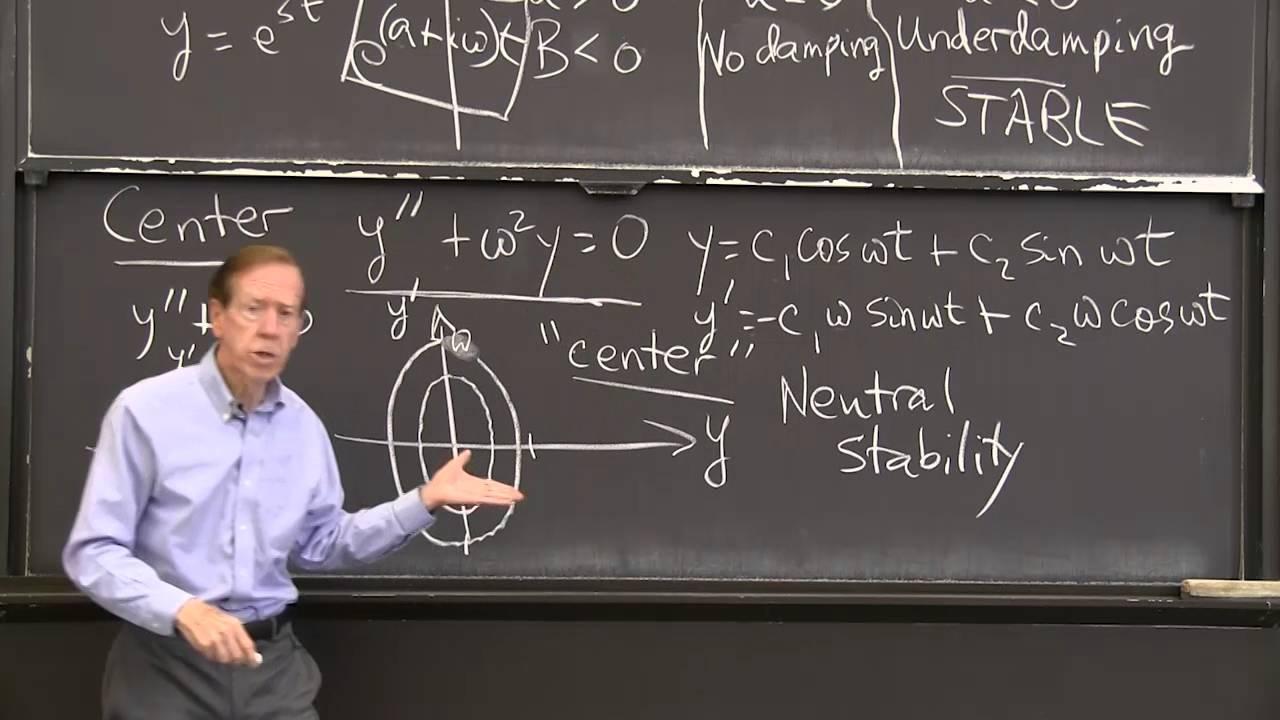 y = e^st e^(a+iω)t B < 0 No damping Underdamping
STABLE
Center y'' + ω²y = 0 y = c₁cos ωt + c₂ sin ωt
y'' + y' y' = -c₁ω sin ωt + c₂ω cos ωt
y' ω "center"
Neutral
y Stability